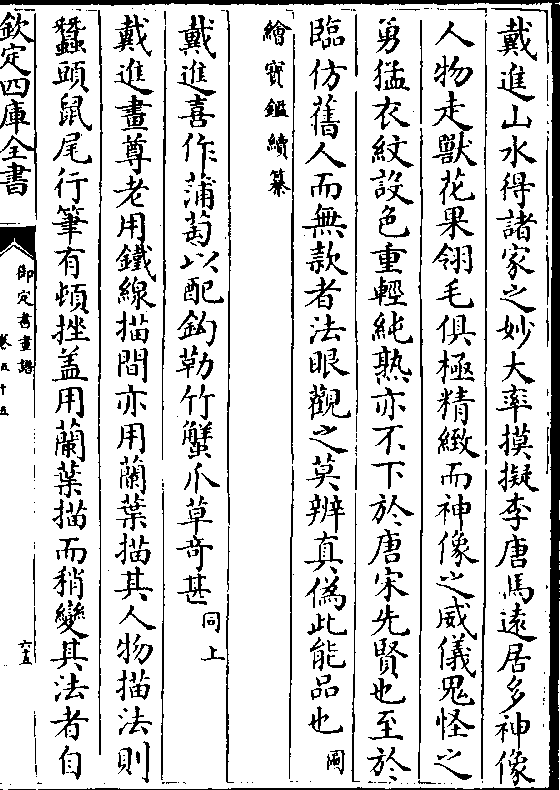 戴進山水得諸家之妙大率摸擬李唐馬遠居多神像
人物走獸花果翎毛俱極精緻而神像之威儀鬼怪之
勇猛衣紋設色重輕純熟亦不下於唐宋先賢也至於
臨仿舊人而無款者法眼觀之莫辨真偽此能品也圖
繪寳鑑續纂
戴進喜作蒲萄以配鈎勒竹蟹爪草奇甚同上
戴進畫尊老用鐵線描間亦用蘭葉描其人物描法則
蠶頭鼠尾行筆有頓挫盖用蘭葉描而稍變其法者自
欽定四庫全書
御定書畫譜
卷五十五
六五